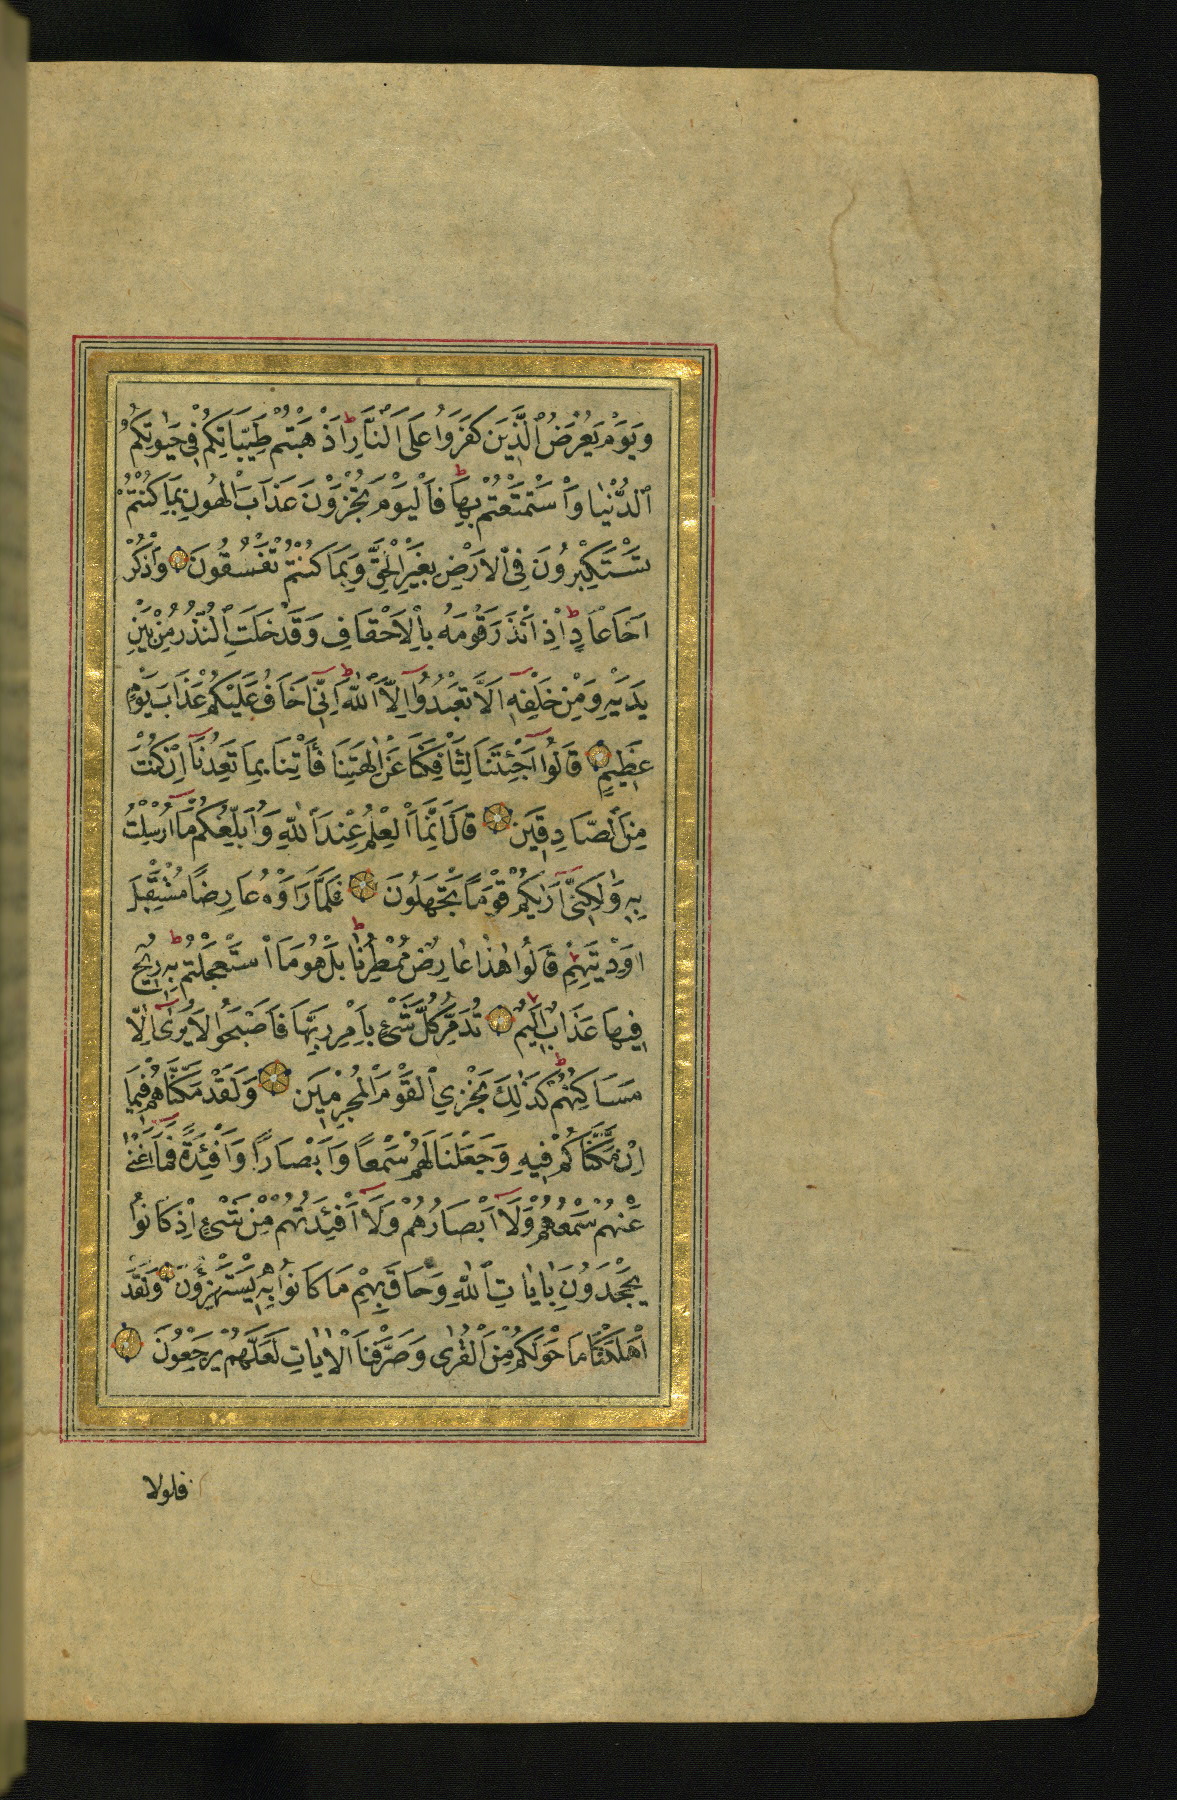 وَيَوْمَ يُعْرَضُ ٱلَّذِينَ كَفَرُوا عَلَى ٱلنَّارِ ط اَذْهَبْتُمْ طَيِّبَاتِكُمْ فِي حَيٰوتِكُمُ
ٱلدُّنْيٰا وَٱسْتَمْتَعْتُمْ بِهَا ط فَٱلْيَوْمَ تُجْزَوْنَ عَذَابَ ٱلْهُونِ بِمَا كُنْتُمْ
تَسْتَكْبِرُونَ فِي ٱلْاَرْضِ بِغَيْرِ ٱلْحَقِّ وَبِمَا كُنْتُمْ تَفْسُقُونَ وَٱذْكُرْ
اَخَا عَادٍ ط اِذْ اَنْذَرَ قَوْمَهُ بِٱلْاَحْقَافِ وَقَدْ خَلَتِ ٱلنُّذُرُ مِنْ بَيْنِ
يَدَيْهِ وَمِنْ خَلْفِهِٓ اَلَّا تَعْبُدُوٓا اِلَّا ٱللّٰهَ ط اِنِّيٓ اَخَافُ عَلَيْكُمْ عَذَابَ يَوْمٍ
عَظِيمٍ قَالُوٓا اَجِئْتَنَا لِتَأْفِكَنَا عَنْ اٰلِهَتِنَا فَأْتِنَا بِمَا تَعِدُنَآ اِنْ كُنْتَ
مِنَ ٱلصَّادِقِينَ قَالَ اِنَّمَا ٱلْعِلْمُ عِنْدَ ٱللّٰهِ وَاُبَلِّغُكُمْ مَآ اُرْسِلْتُ
بِهِ وَلٰكِنِّيٓ اَرٰيكُمْ قَوْمًا تَجْهَلُونَ فَلَمَّا رَاَوْهُ عَارِضًا مُسْتَقْبِلَ
اَوْدِيَتِهِمْ قَالُوا هٰذَا عَارِضٌ مُمْطِرُنَا ط بَلْ هُوَ مَا ٱسْتَعْجَلْتُمْ بِهِ ط رِيحٌ
فِيهَا عَذَابٌ اَلِيمٌ تُدَمِّرُ كُلَّ شَيْءٍ بِاَمْرِ رَبِّهَا فَاَصْبَحُوا لَا يُرٰٓى اِلَّا
مَسَاكِنُهُمْ ط كَذٰلِكَ نَجْزِي ٱلْقَوْمَ ٱلْمُجْرِمِينَ وَلَقَدْ مَكَّنَّاهُمْ فِيمَآ
اِنْ مَكَّنَّاكُمْ فِيهِ وَجَعَلْنَا لَهُمْ سَمْعًا وَاَبْصَارًا وَاَفْئِدَةً فَمَآ اَغْنٰى
عَنْهُمْ سَمْعُهُمْ وَلَآ اَبْصَارُهُمْ وَلَآ اَفْئِدَتُهُمْ مِنْ شَيْءٍ اِذْ كَانُوا
يَجْحَدُونَ بِاٰيَاتِ ٱللّٰهِ وَحَاقَ بِهِمْ مَا كَانُوا بِهِ يَسْتَهْزِؤُنَ وَلَقَدْ
اَهْلَكْنَا مَا حَوْلَكُمْ مِنَ ٱلْقُرٰى وَصَرَّفْنَا ٱلْاٰيَاتِ لَعَلَّهُمْ يَرْجِعُونَ
فلولا